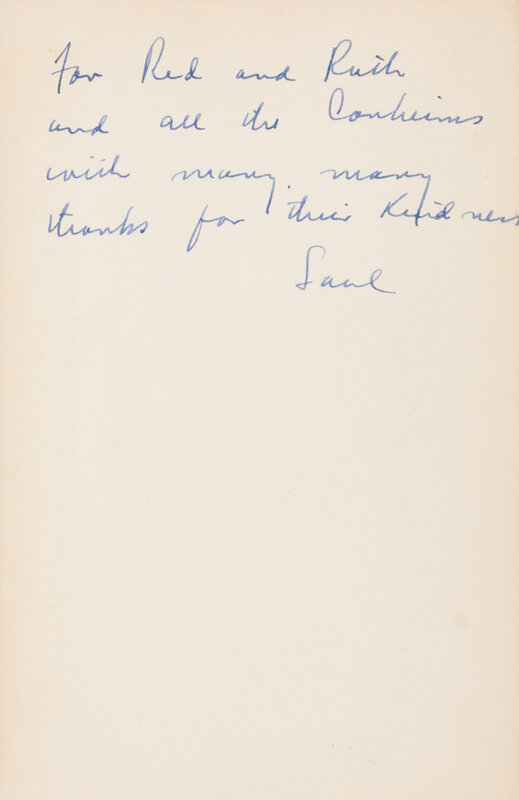 For Red and Ruth
and all the Conheims
with many, many
thanks for their kindness
Saul